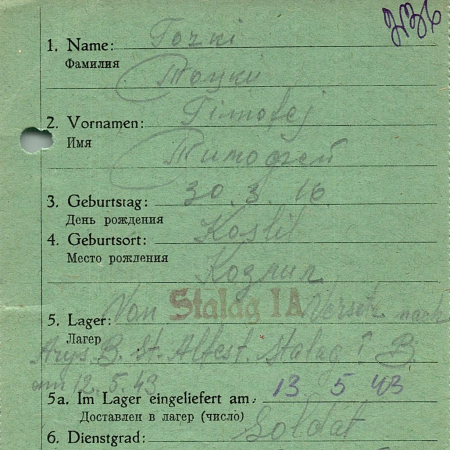 236
1. Name: Gozki
Фамилия
Гоцкий
2. Vornamen: Timofej
Имя
Тимофей
3. Geburtstag: 30. 3. 16
День рождения
4. Geburtsort: Koslil
Место рождения
Козлил
Von Stalag IA Versetz nach
5. Lager:
Лагер
Arys B. St. Stalag I B
am 12.5.43
5a. Im Lager eingeliefert am: 13 5 43
Доставлен в лагер (число)
6. Dienstgrad: Soldat